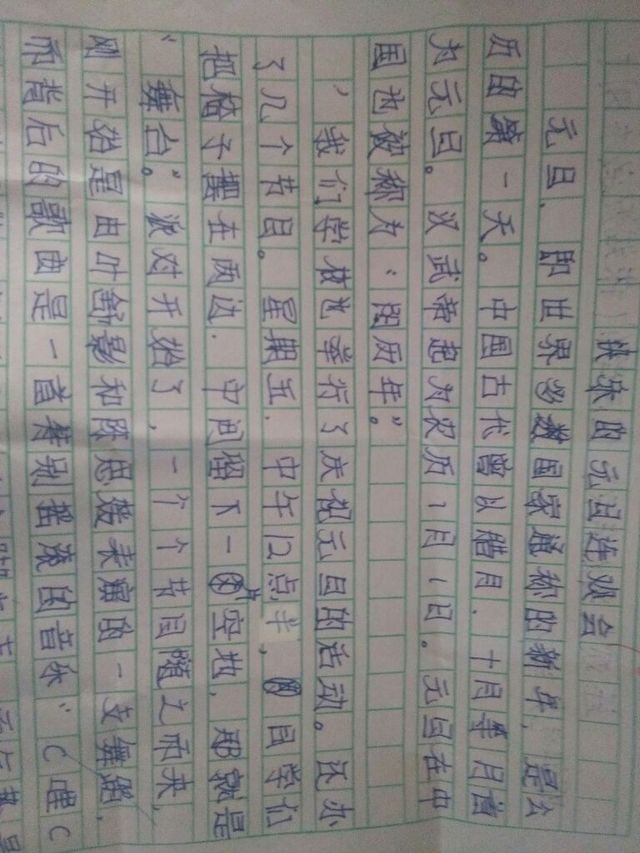 快乐的元旦连欢会
元旦，即世界多数国家通称的新年，是公
历的第一天。中国古代曾以腊月、十月等月首
为元旦。汉武帝起为农历1月1日。元旦在中
国也被称为：阳历年”。
，我们学校也举行了庆祝元旦的活动。还办
了几个节目。星期五，中午12点半，同学们
把椅子摆在两边，中间留下一片空地，那就是
“舞台”。派对开始了，一个个节目随之而来，
刚开始是由叶舒影和陈思媛来演的一支舞蹈，
而背后的歌曲是一首特别摇滚的音乐“C哩C